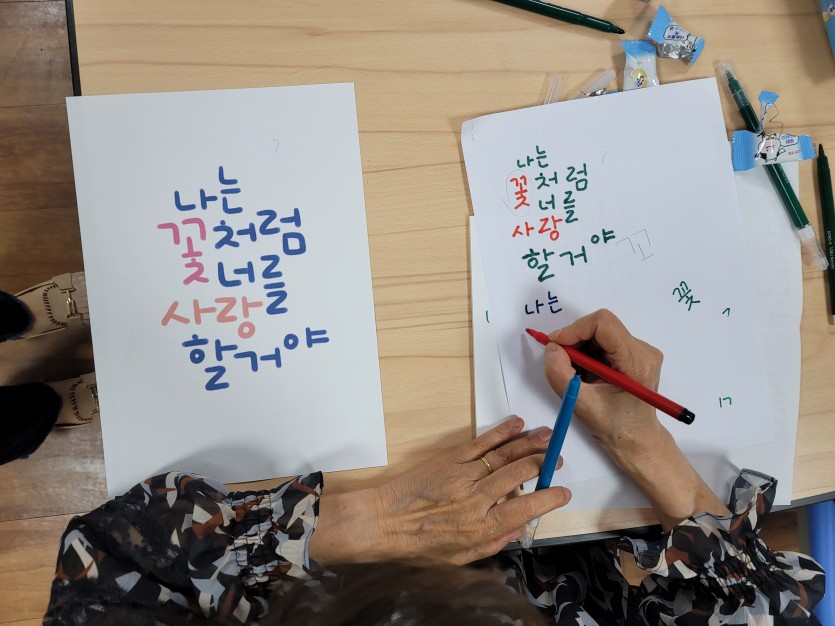 나는
꽃처럼
너를
사랑
할거야
나는
꽃처럼
너를
사랑
할거야
꼬
나는
꽃